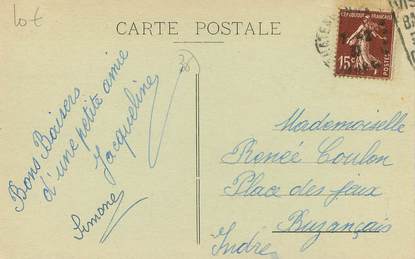 lot
CARTE POSTALE
REPUBLIQUE FRANÇAISE
15c
Bons Baisers
d'une petite amie
Jacqueline
Simone
Mademoiselle
Renée Coulon
Place des Jeux
Buzançais
Indre